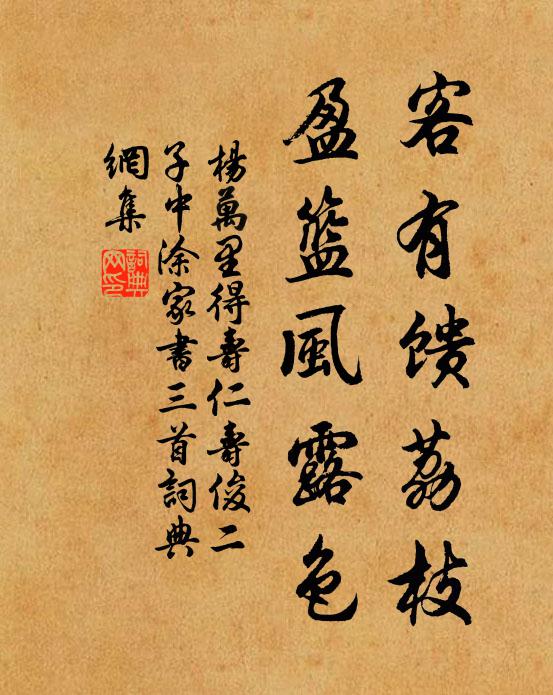 客有馈荔枝
盈籃風露色
楊萬里得壽仁壽俊二
子中涂家書三首詞典
網集
詞典
网印